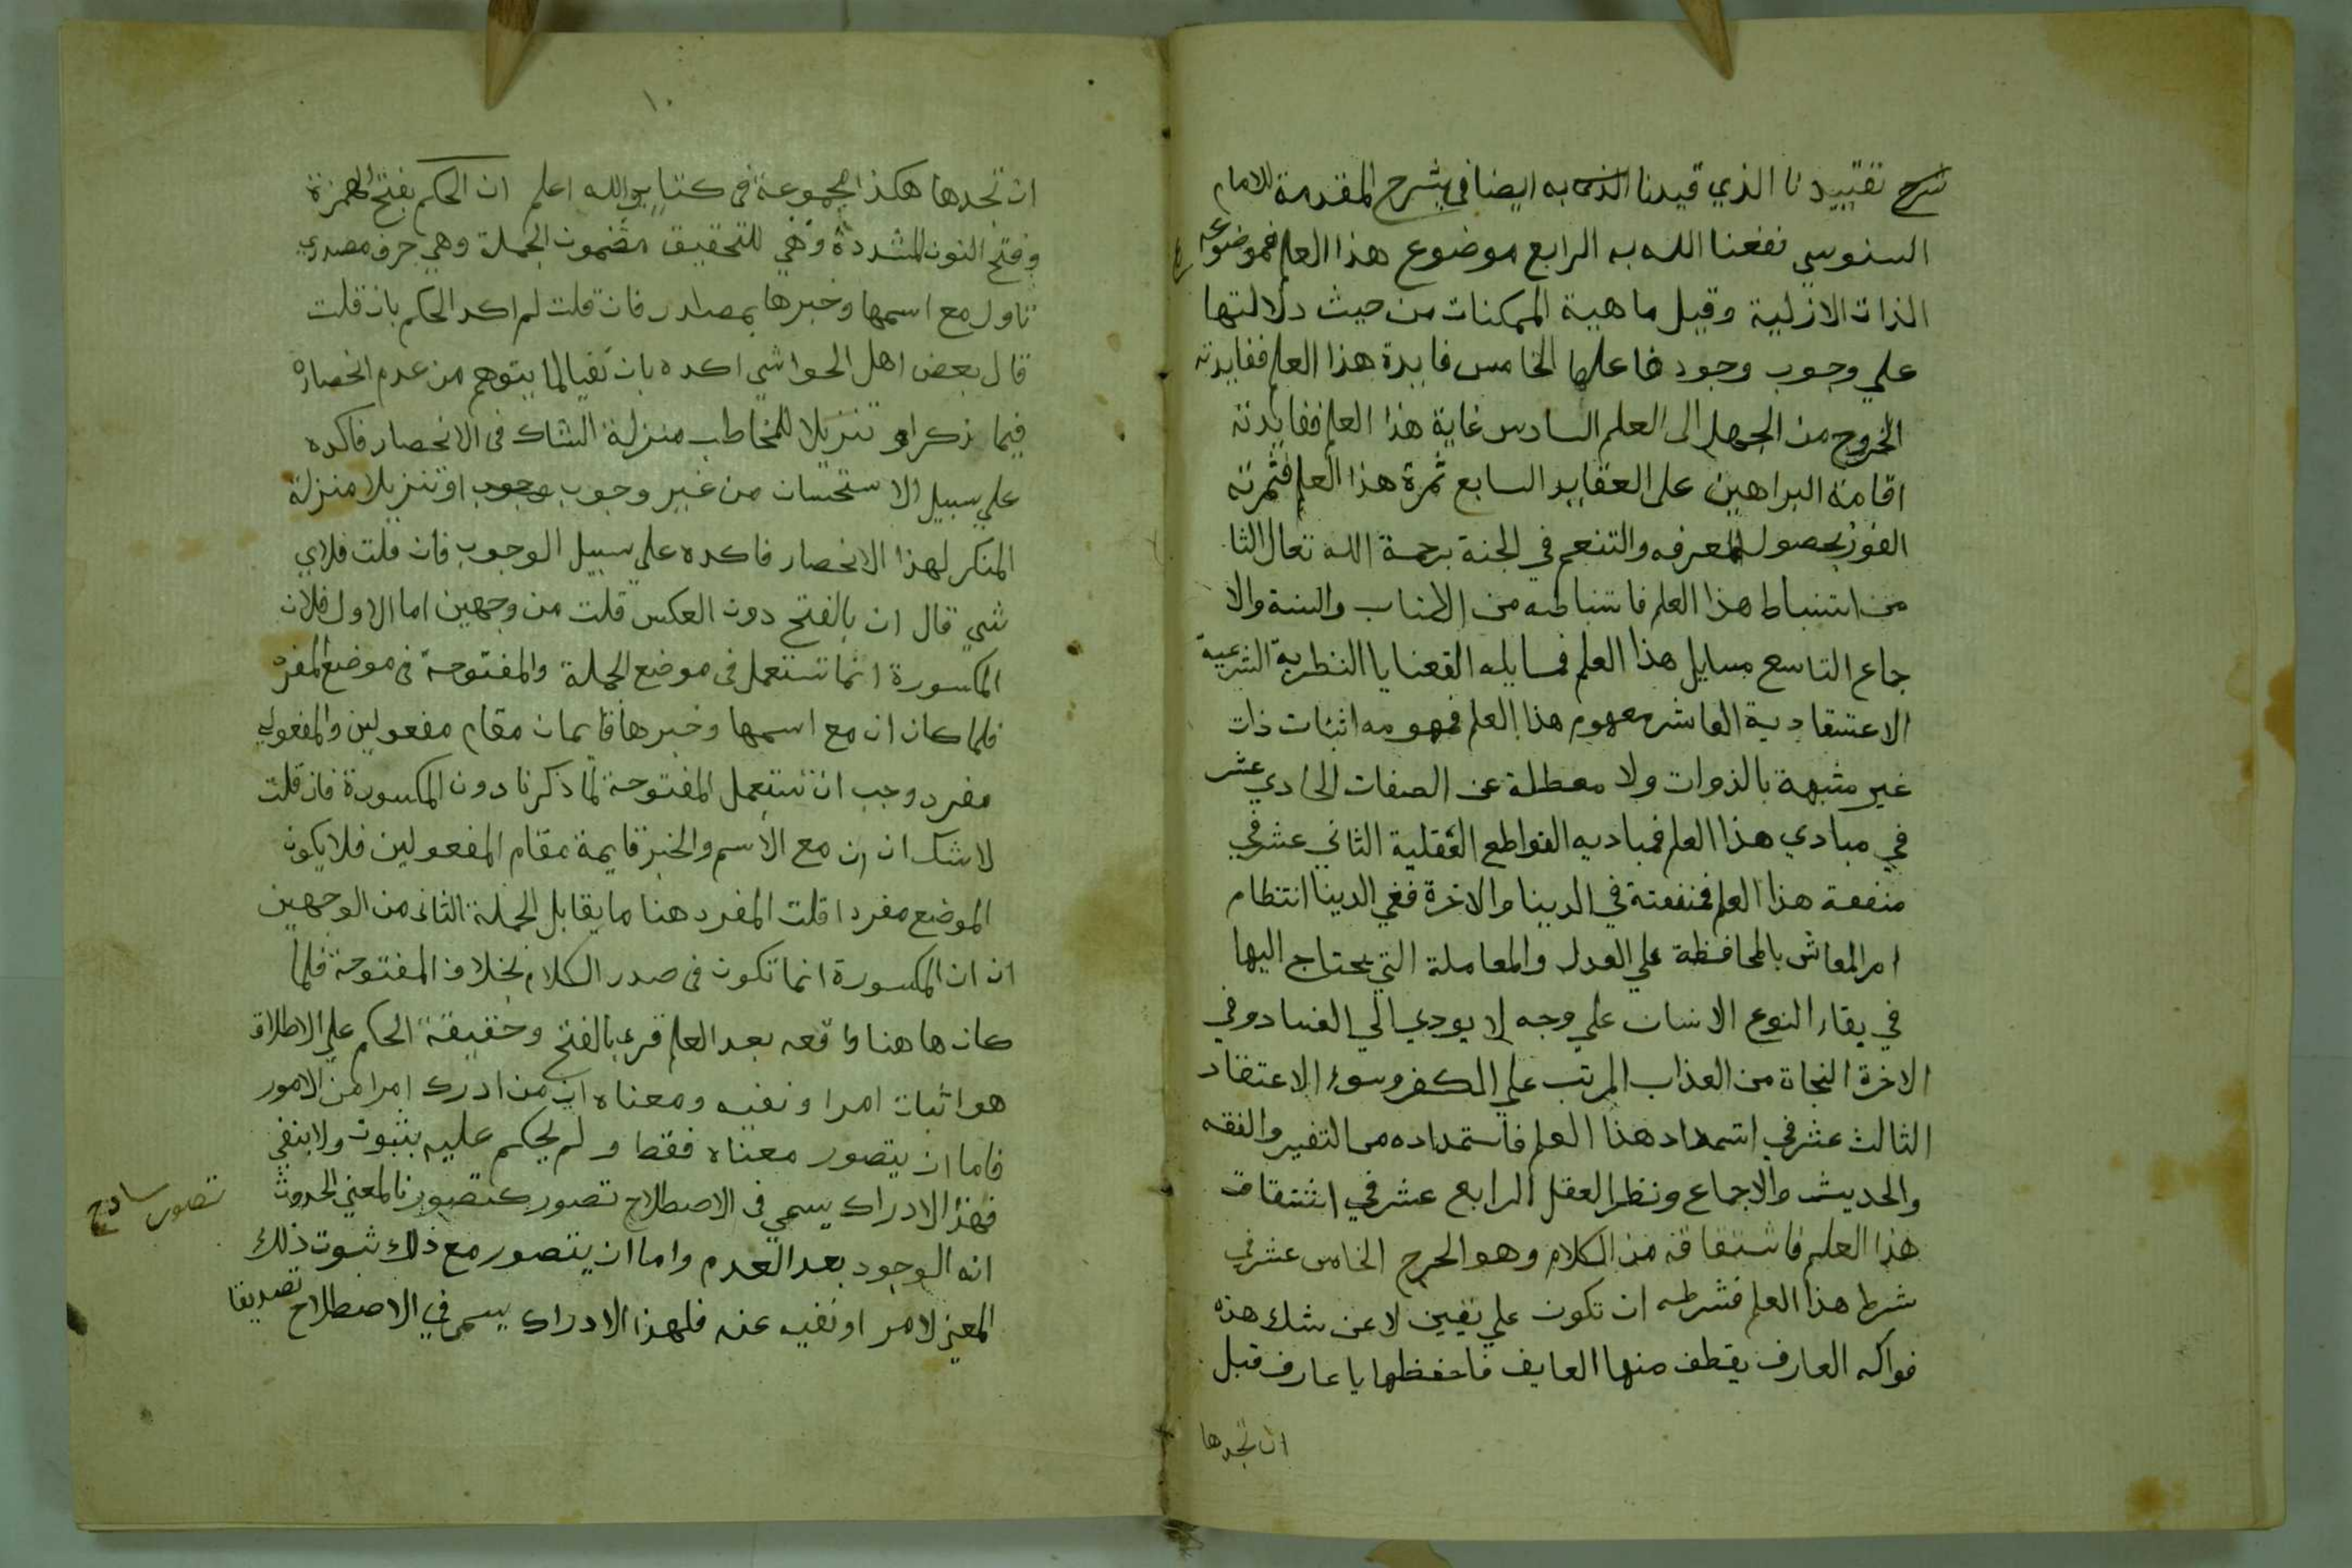 شرح تقييدنا الذي قيدنا الذى به ايضا في شرح المقدمة للامام
السنوسي نفعنا الله به الرابع موضوع هذا العلم فموضوعه
الذات الازلية وقيل ماهية الممكنات من حيث دلالتها
علي وجوب وجود فاعلها الخامس فايدة هذا العلم ففايدته
الخروج من الجهل الى العلم السادس غاية هذا العلم ففايدته
اقامة البراهين على العقايد السابع ثمرة هذا العلم فثمرته
الفوز بحصول المعرفه والتنعم في الجنة برحمة الله تعال الثا
من استنباط هذا العلم فاستنباطه من الكتاب والسنة والا
جماع التاسع مسايل هذا العلم فمسايله القضايا النظرية الشرعية
الاعتقادية العاشر مفهوم هذا العلم فمفهومه اثبات ذات
غير مشبهة بالذوات ولا معطلة عن الصفات الحادي عشر
في مبادي هذا العلم فمباديه القواطع العقلية الثاني عشر في
منفعة هذا العلم فمنفعته في الدينا والاخرة ففي الدينا انتظام
امر المعاش بالمحافظة علي العدل والمعاملة التي يحتاج اليها
في بقاء النوع الانسان علي وجه لا يودي الي الفساد وفي
الاخرة النجاة من العذاب المرتب علي الكفر وسوء الاعتقاد
الثالث عشر في استمداد هذا العلم فاستمداده من التفسير والفقه
والحديث والاجماع ونظر العقل الرابع عشر في اشتقاق
هذا العلم فاشتقاقه من الكلام وهو الجرح الخامس عشر في
شرط هذا العلم فشرطه ان تكون علي يقين لا عن شك هذه
فواكه العارف يقطف منها العايف فاحفظها يا عارف قبل
ان تجدها
١٠
ان تجدها هكذا مجموعة في كتاب والله اعلم ان الحكم بفتح الهمزة
وفتح النون المشددة وهي للتحقيق مضمون الجملة وهي حرف مصدري
تاول مع اسمها وخبرها بمصدر فان قلت لم اكد الحكم بان قلت
قال بعض اهل الحواشي اكده بان نفيا لما يتوهم من عدم انحصاره
فيما ذكر او تنزيلا للمخاطب منزلة الشاك في الانحصار فاكده
علي سبيل الاستحسان من غير وجوب وجوب او تنزيلا منزلة
المنكر لهذا الانحصار فاكده علي سبيل الوجوب فان قلت فلاي
شي قال ان بالفتح دون العكس قلت من وجهين اما الاول فلان
المكسورة انما تستعمل في موضع الجملة والمفتوحة في موضع المفرد
فلما كان ان مع اسمها وخبرها قايمان مقام مفعولين والمفعولي
مفرد وجب ان تستعمل المفتوحة لما ذكرنا دون المكسورة فان قلت
لا شك ان ان مع الاسم والخبر قايمة مقام المفعولين فلا يكون
الموضع مفردا قلت المفرد هنا ما يقابل الجملة الثاني من الوجهين
ان ان المكسورة انما تكون في صدر الكلام بخلاف المفتوحة فلما
كان هاهنا واقعه بعد العلم قرء بالفتح وحقيقة الحكم علي الاطلاق
هو اثبات امر او نفيه ومعناه ان من ادرك امرا من الامور
فاما ان يتصور معناه فقط ولم يحكم عليه بثبوت ولا بنفي
فهذا الادراك يسمي في الاصطلاح تصور كتصورنا لمعني الحدوث
تصور ساذج
انه الوجود بعد العدم واما ان يتصور مع ذلك ثبوت ذلك
المعني لامر او نفيه عنه فلهذا الادراك يسمي في الاصطلاح تصديقا